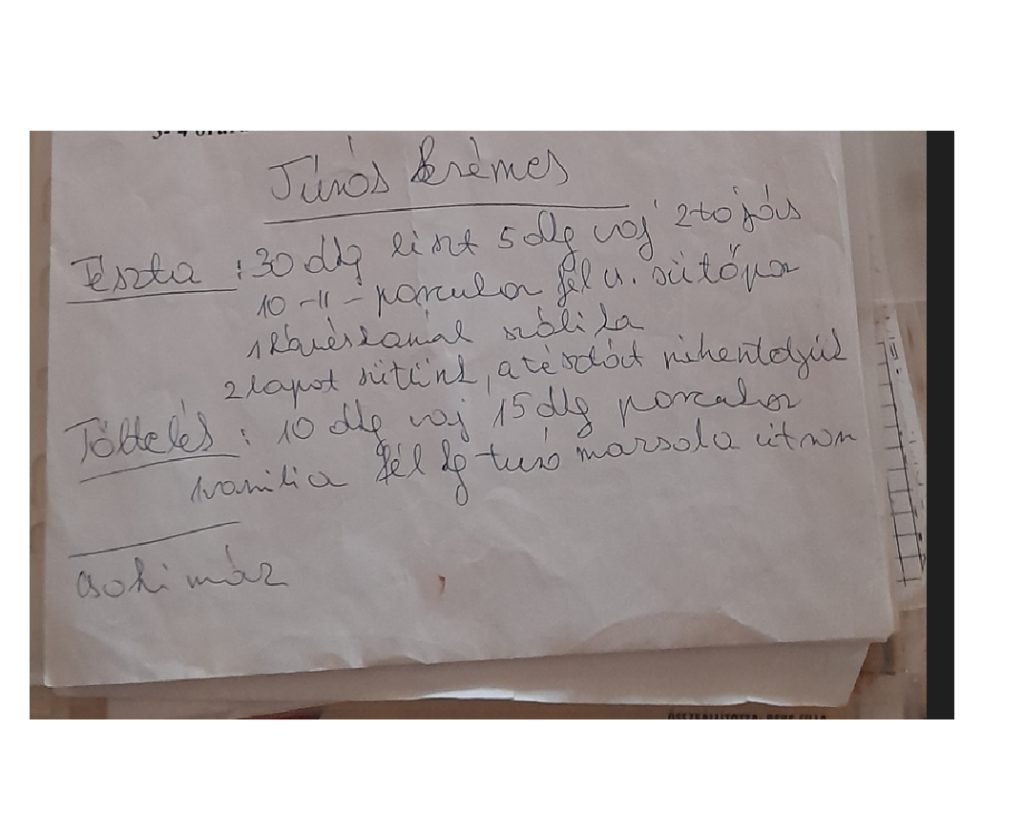 Túrós krémes
Tészta : 30 dkg liszt 5 dkg vaj 2 tojás
10 -11- porcukor fél cs. sütőpor
1 kávéskanál szóda
2 lapot sütünk, a tésztát pihentetjük
Töltelés : 10 dkg vaj 15 dkg porcukor
1 vanilia fél kg turó marsola citrom
csoki máz